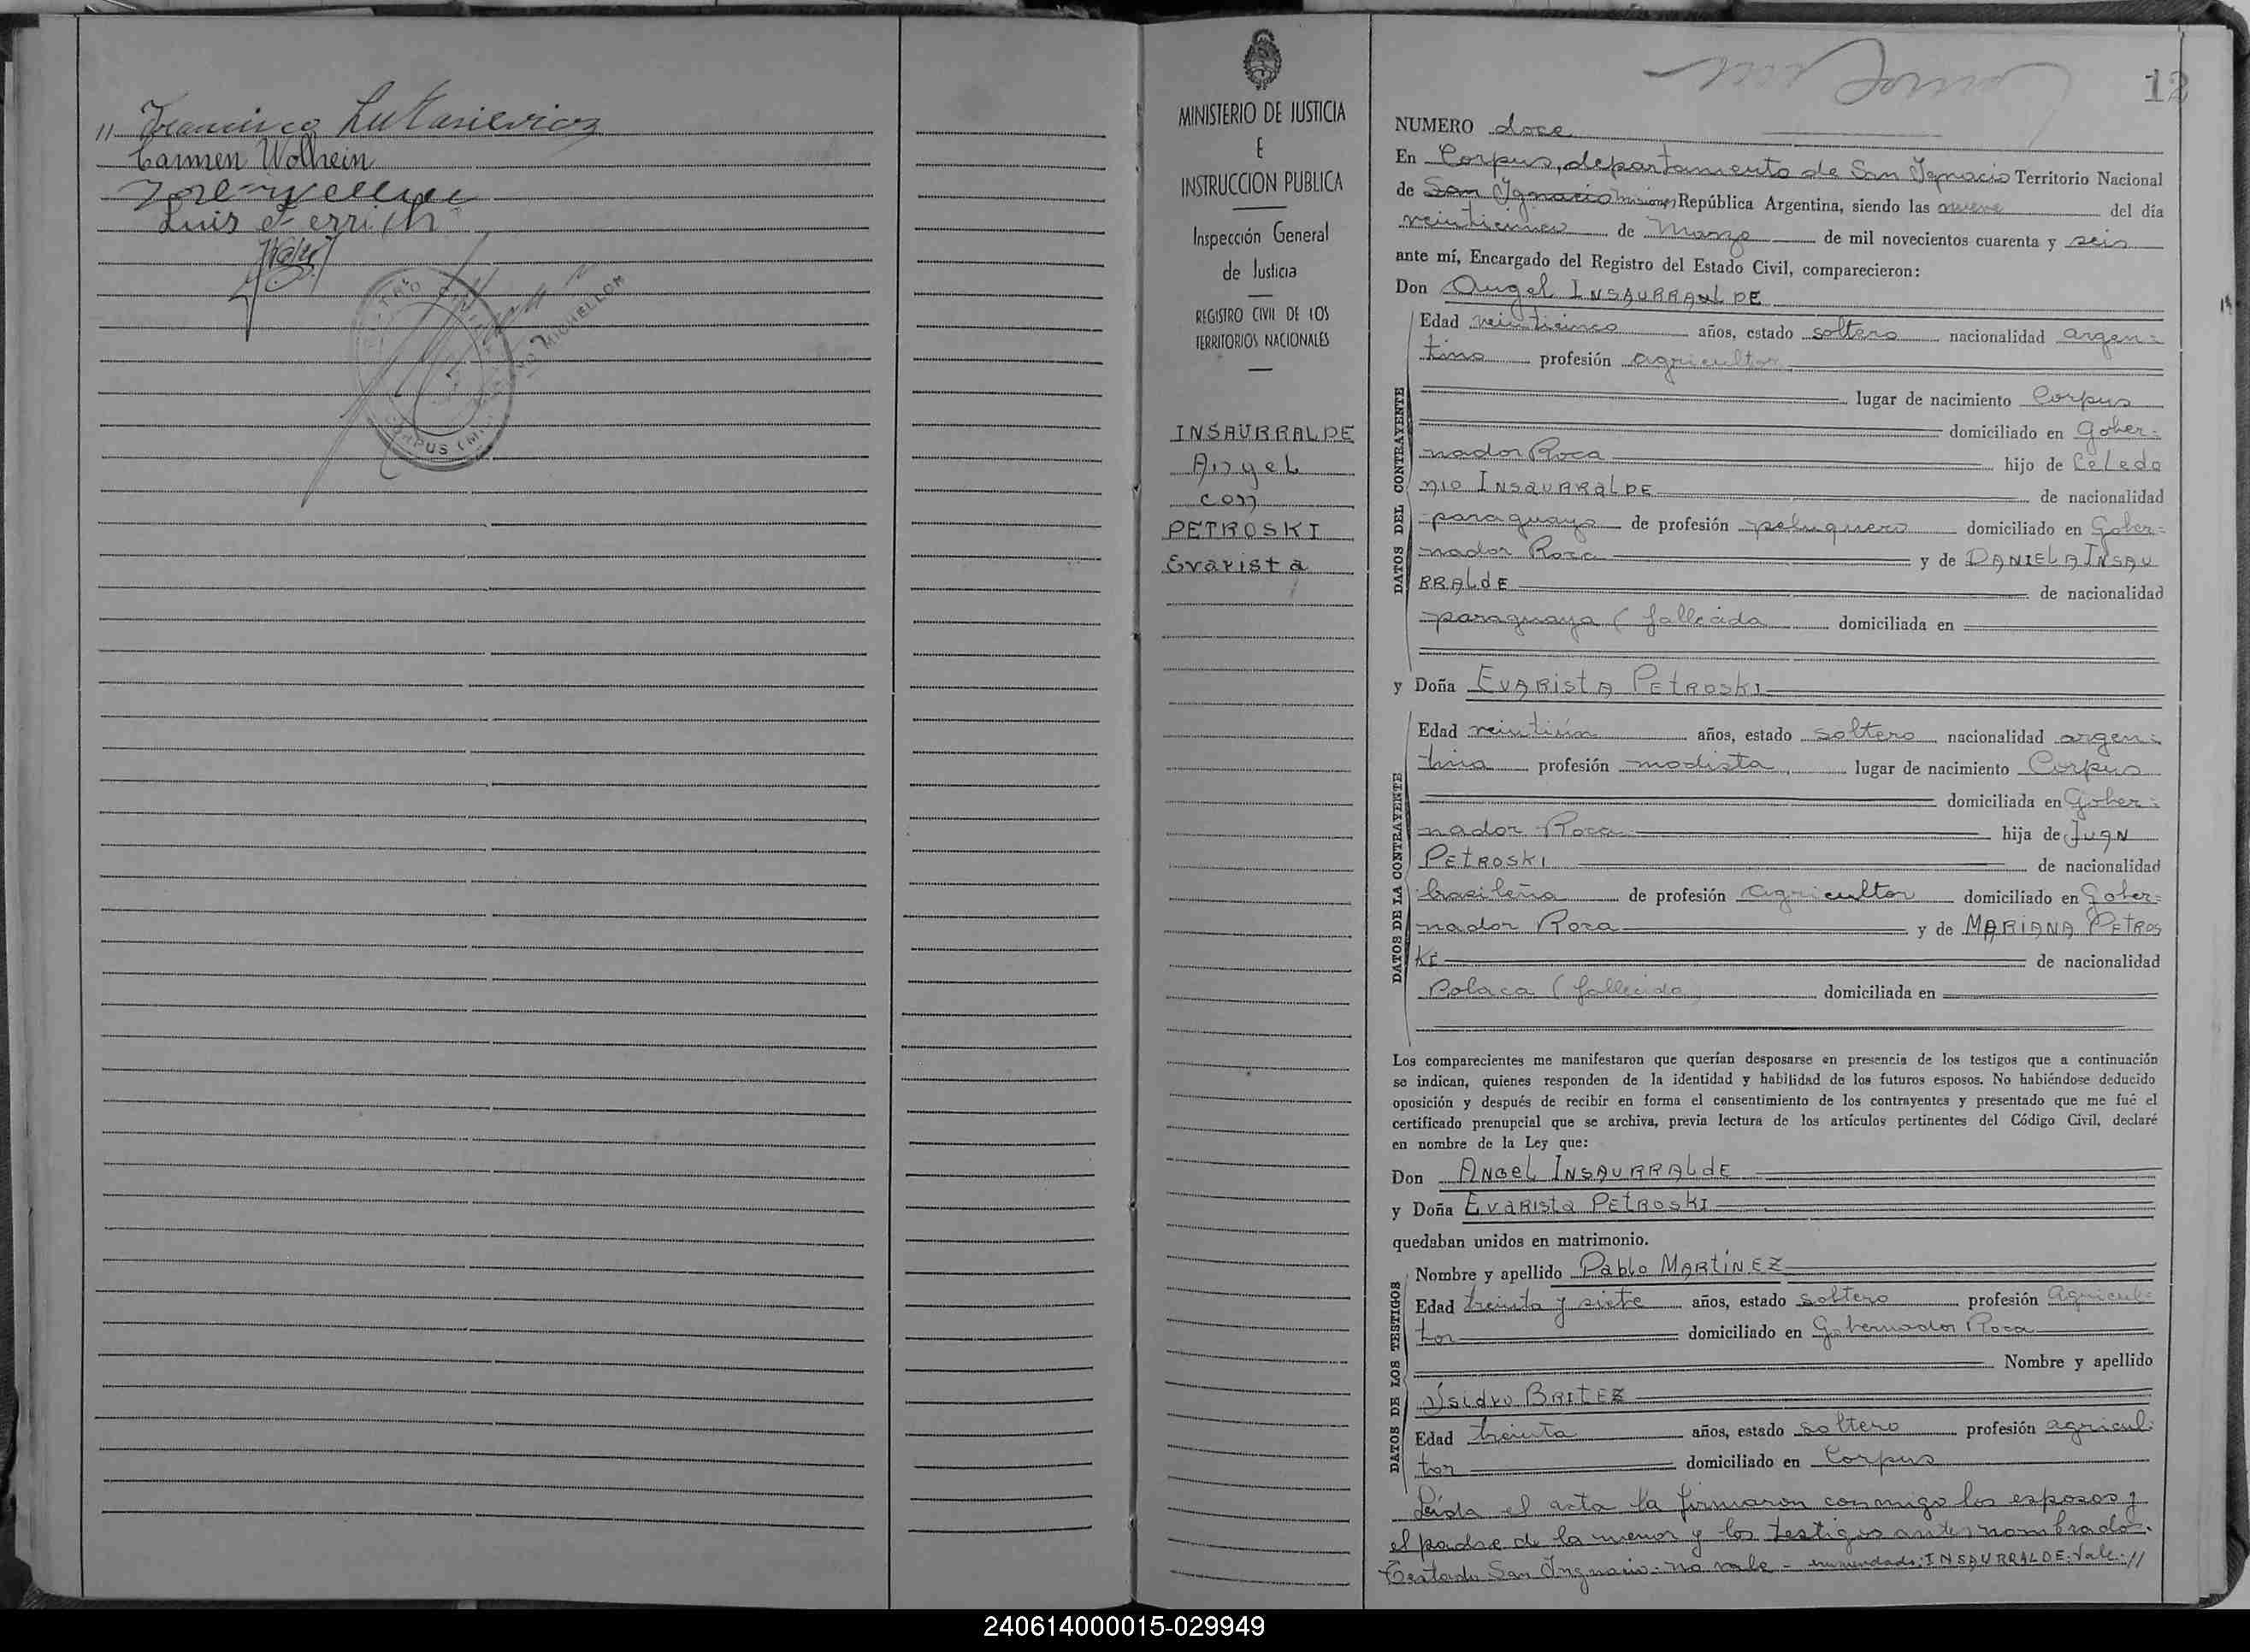 11 Francisco Lukasievicz
Carmen Wolhein
Luis Ferrich
CORPUS (M
MICHELLON
MINISTERIO DE JUSTICIA
E
INSTRUCCION PUBLICA
Inspección General
de Justicia
REGISTRO CIVIL DE LOS
TERRITORIOS NACIONALES
INSAURRALDE
Angel
con
PETROSKI
Evarista
12
NUMERO doce
En Corpus, departamento de San Ignacio Territorio Nacional
de San Ignacio Misiones República Argentina, siendo las nueve del día
veinticinco de Marzo de mil novecientos cuarenta y seis
ante mí, Encargado del Registro del Estado Civil, comparecieron:
Don Angel INSAURRALDE
DATOS DEL CONTRAYENTE
Edad veinticinco años, estado soltero nacionalidad argen=
tino profesión agricultor
lugar de nacimiento Corpus
domiciliado en Gober=
nador Roca hijo de CeLedo
nio INSAURRALDE de nacionalidad
paraguayo de profesión peluquero domiciliado en Gober=
nador Roca y de DANIELA INSAU
RRALdE de nacionalidad
paraguaya (fallecida domiciliada en
y Doña EVARistA PEtROSKI
DATOS DE LA CONTRAYENTE
Edad veintiún años, estado soltero nacionalidad argen=
tina profesión modista lugar de nacimiento Corpus
domiciliada en Gober=
nador Roca hija de JUAN
PEtROSKI de nacionalidad
brasileño de profesión agricultor domiciliado en Gober=
nador Roca y de MARIANA PETROS
KI de nacionalidad
Polaca (fallecida) domiciliada en
Los comparecientes me manifestaron que querían desposarse en presencia de los testigos que a continuación
se indican, quienes responden de la identidad y habilidad de los futuros esposos. No habiéndose deducido
oposición y después de recibir en forma el consentimiento de los contrayentes y presentado que me fué el
certificado prenupcial que se archiva, previa lectura de los artículos pertinentes del Código Civil, declaré
en nombre de la Ley que:
Don ANGEL INSAURRALdE
y Doña EVARISTA PETROSKI
quedaban unidos en matrimonio.
DATOS DE LOS TESTIGOS
Nombre y apellido Pablo MARTÍNEZ
Edad treinta y siete años, estado soltero profesión agricul=
tor domiciliado en Gobernador Roca
Nombre y apellido
Ysidro BRITEZ
Edad treinta años, estado soltero profesión agricul=
tor domiciliado en Corpus
Leída el acta la firmaron conmigo los esposos y
el padre de la menor y los testigos antes nombrados.
Testado San Ingnacio - no vale - enmendado: INSAURRALDE: Vale -//
240614000015-029949